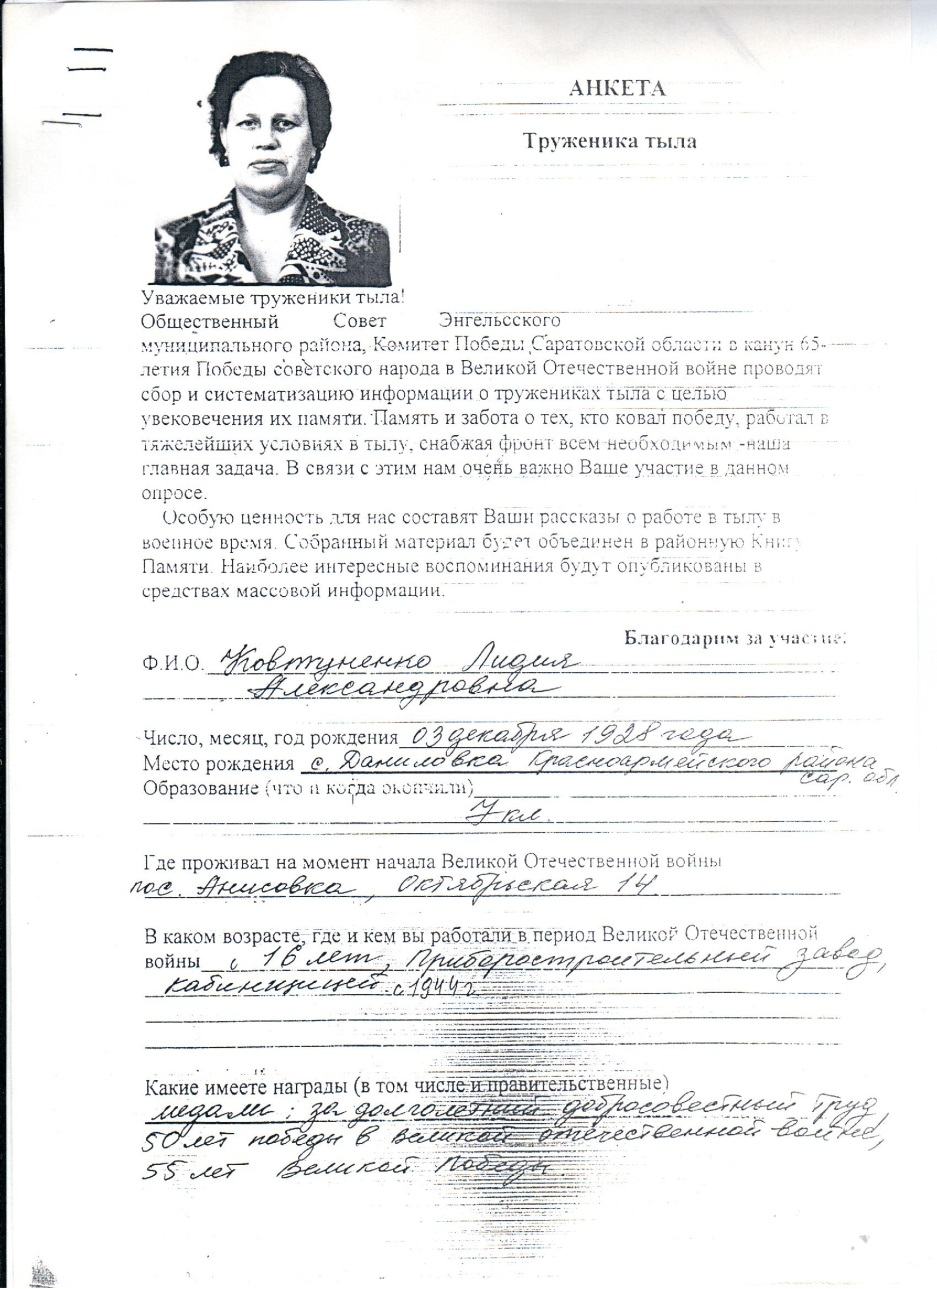 АНКЕТА
Труженика тыла
Уважаемые труженики тыла!
Общественный Совет Энгельсского
муниципального района, Комитет Победы Саратовской области в канун 65-
летия Победы советского народа в Великой Отечественной войне проводят
сбор и систематизацию информации о тружениках тыла с целью
увековечения их памяти. Память и забота о тех, кто ковал победу, работал в
тяжелейших условиях в тылу, снабжая фронт всем необходимым -наша
главная задача. В связи с этим нам очень важно Ваше участие в данном
опросе.
Особую ценность для нас составят Ваши рассказы о работе в тылу в
военное время. Собранный материал будет объединен в районную Книгу
Памяти. Наиболее интересные воспоминания будут опубликованы в
средствах массовой информации.
Благодарим за участие!
Ф.И.О. Ковтуненко Лидия
Александровна
Число, месяц, год рождения 03 декабря 1928 года
Место рождения с. Даниловка Красноармейского района
сар. обл.
Образование (что и когда окончили)
7 кл.
Где проживал на момент начала Великой Отечественной войны
пос. Анисовка, Октябрьская 14
В каком возрасте, где и кем вы работали в период Великой Отечественной
войны с 16 лет, Приборостроительный завод,
кабинщицей с 1944г
Какие имеете награды (в том числе и правительственные)
медали: за долголетний добросовестный труд
50 лет победы в великой отечественной войне,
55 лет Великой Победы.